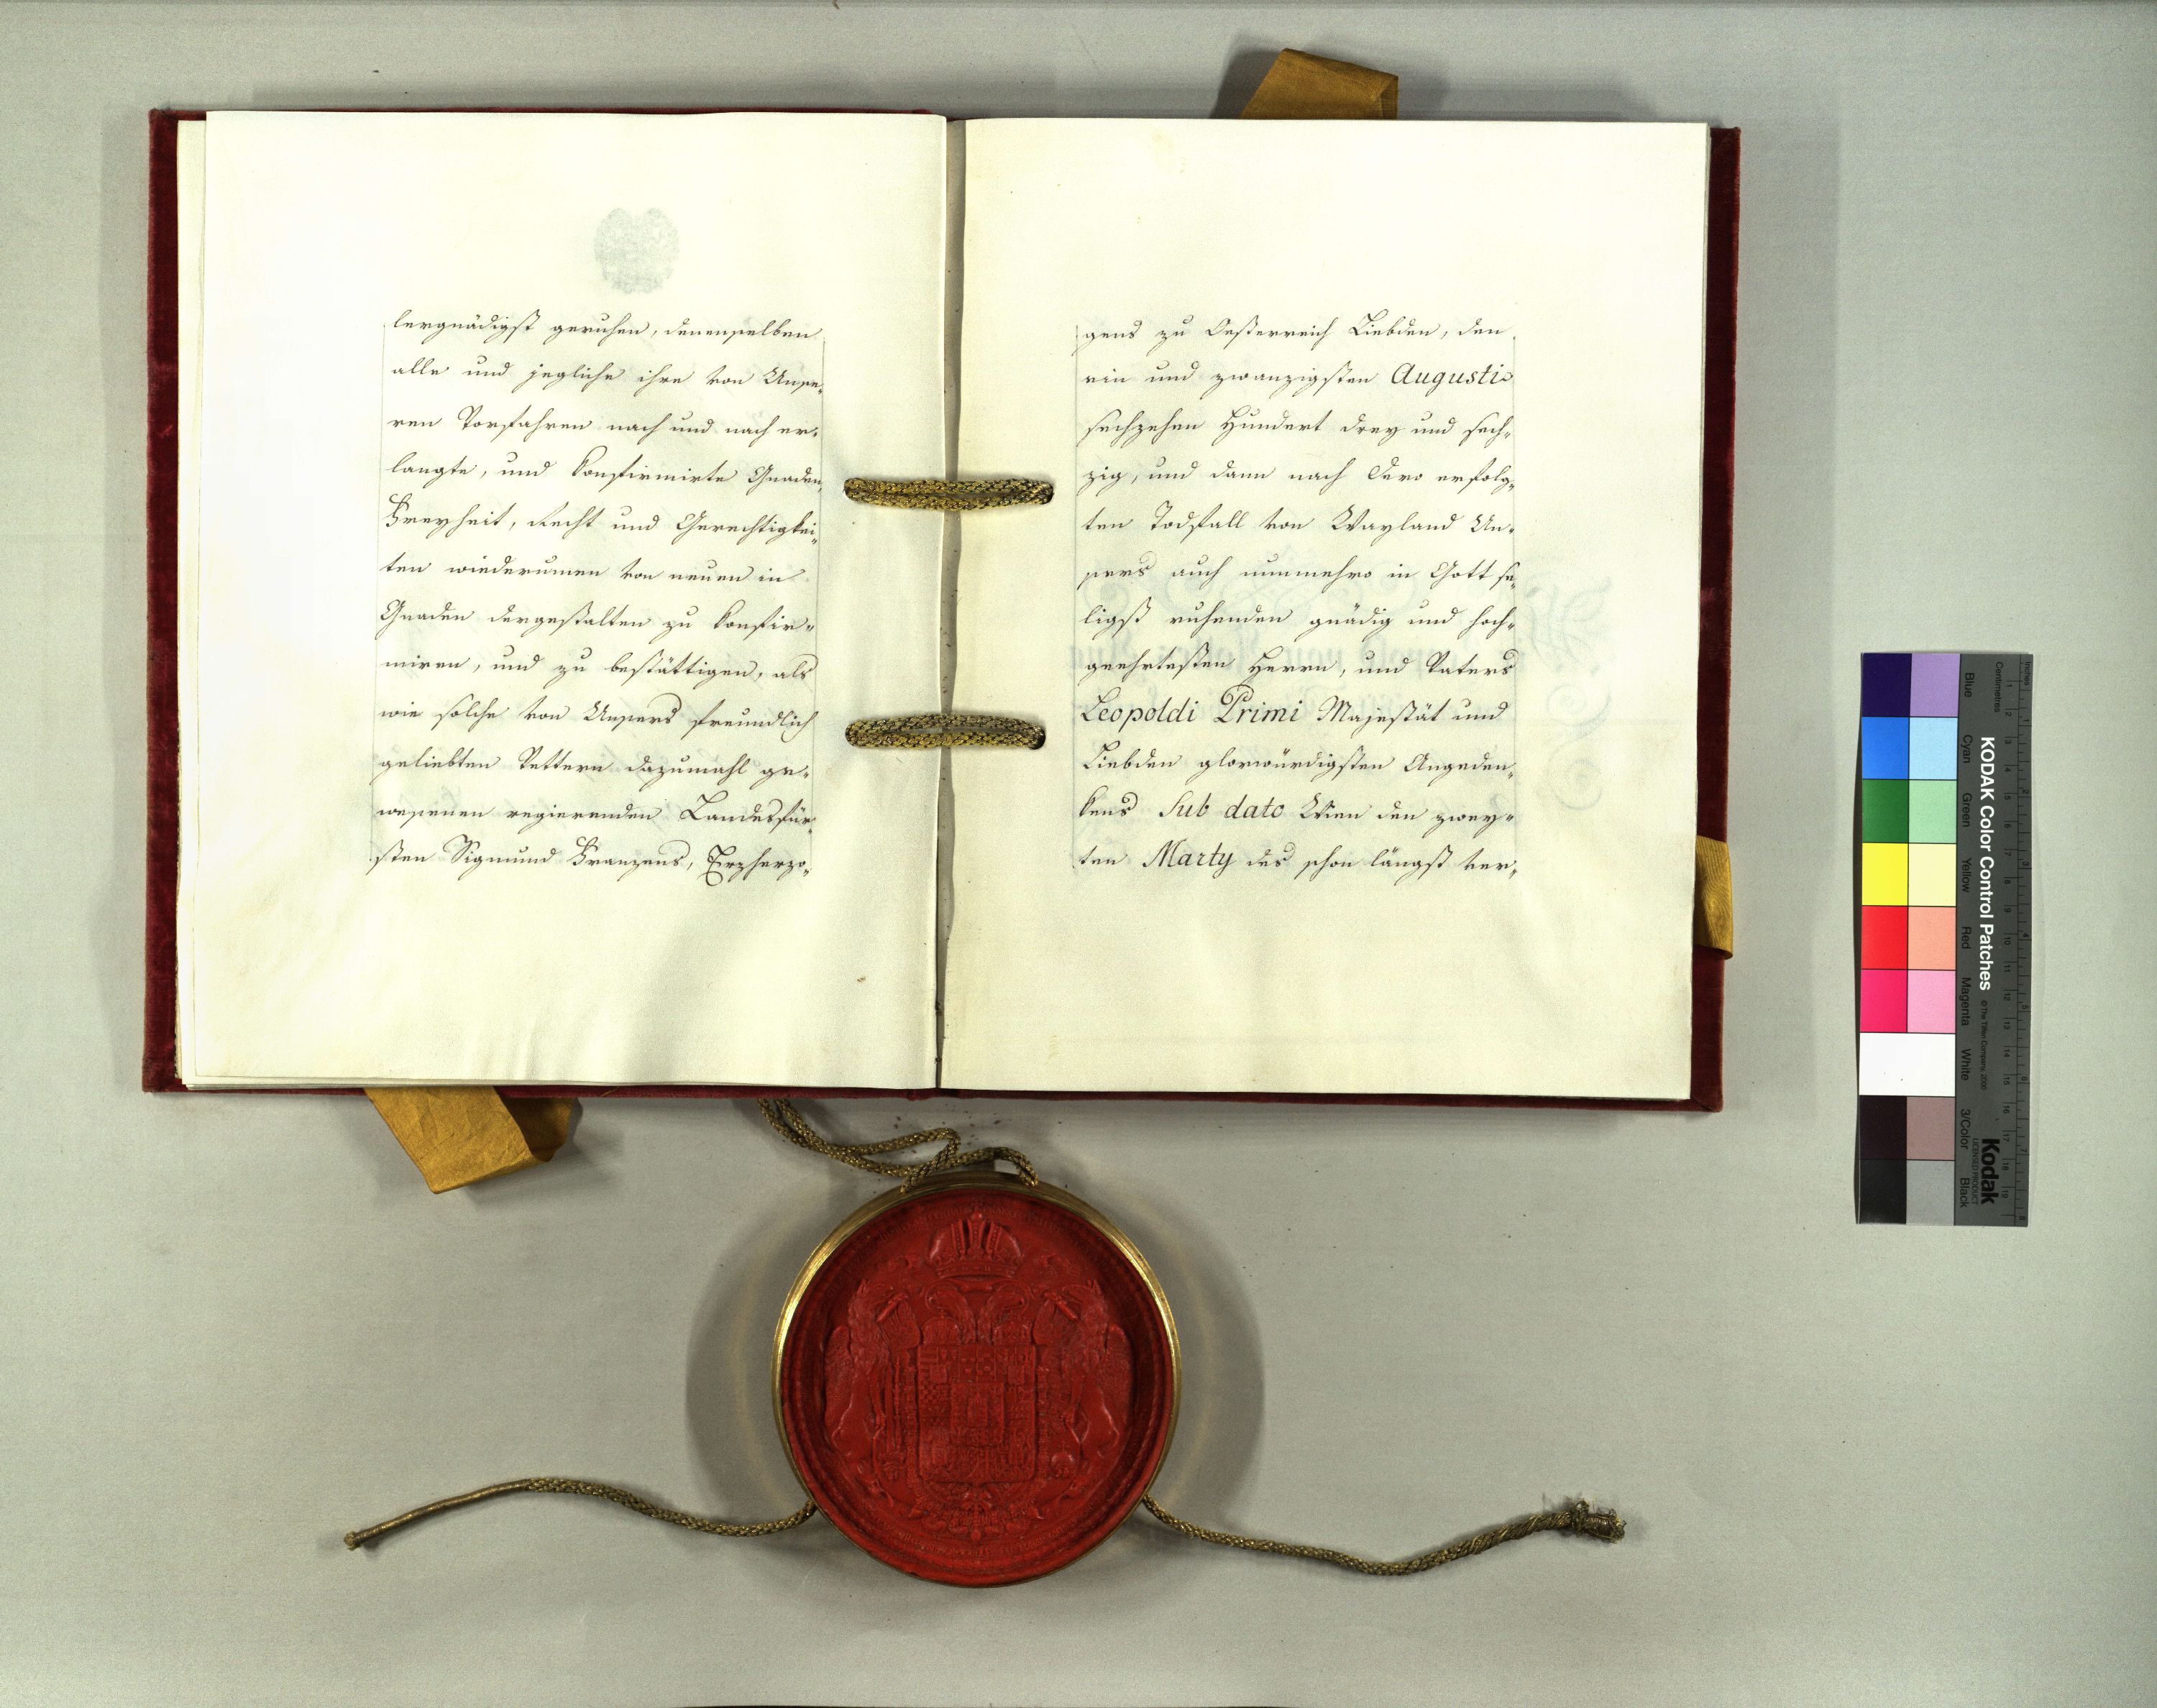 lergnädigst geruhen, denenselben
alle und jegliche ihre von Unse„
ren Vorfahren nach und nach er„
langte, und konfirmirte Gnaden,
Freyheit, Recht und Gerechtigkei„
ten wiederumen von neuen in
Gnaden dergestalten zu konfir„
miren, und zu bestättigen, als
wie solche von Unsers freundlich
geliebten Vettern dazumahl ge„
wesenen regierenden Landesfür„
sten Sigmund Franzens, Erzherzo„
gens zu Oesterreich Liebden, den
ein und zwanzigsten Augusti
sechzehen Hundert drey und sech„
zig, und dann nach Dero erfolg„
ten Todfall von Wayland Un„
sers auch nunmehro in Gott se„
ligst ruhenden gnädig und hoch„
geehrtesten Herrn, und Vaters
Leopoldi Primi Majestät und
Liebden glorwürdigsten Angeden„
kens Sub dato Wien den zwey„
ten Marty des schon längst ver„
KODAK Color Control Patches
Kodak
LICENSED PRODUCT
© The Tiffen Company, 2000
Inches
Centimetres
Blue
Cyan
Green
Yellow
Red
Magenta
White
3/Color
Black